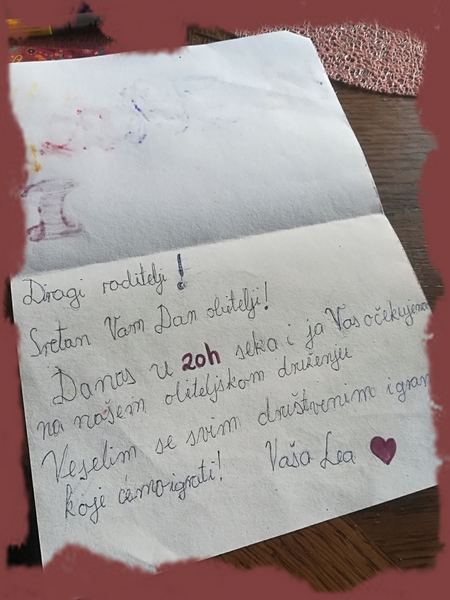 Dragi roditelji!
Sretan Vam Dan obitelji!
Danas u 20h seka i ja Vas očekujemo
na našem obiteljskom druženju
Veselim se svim društvenim igram
koje ćemo igrati! Vaša Lea